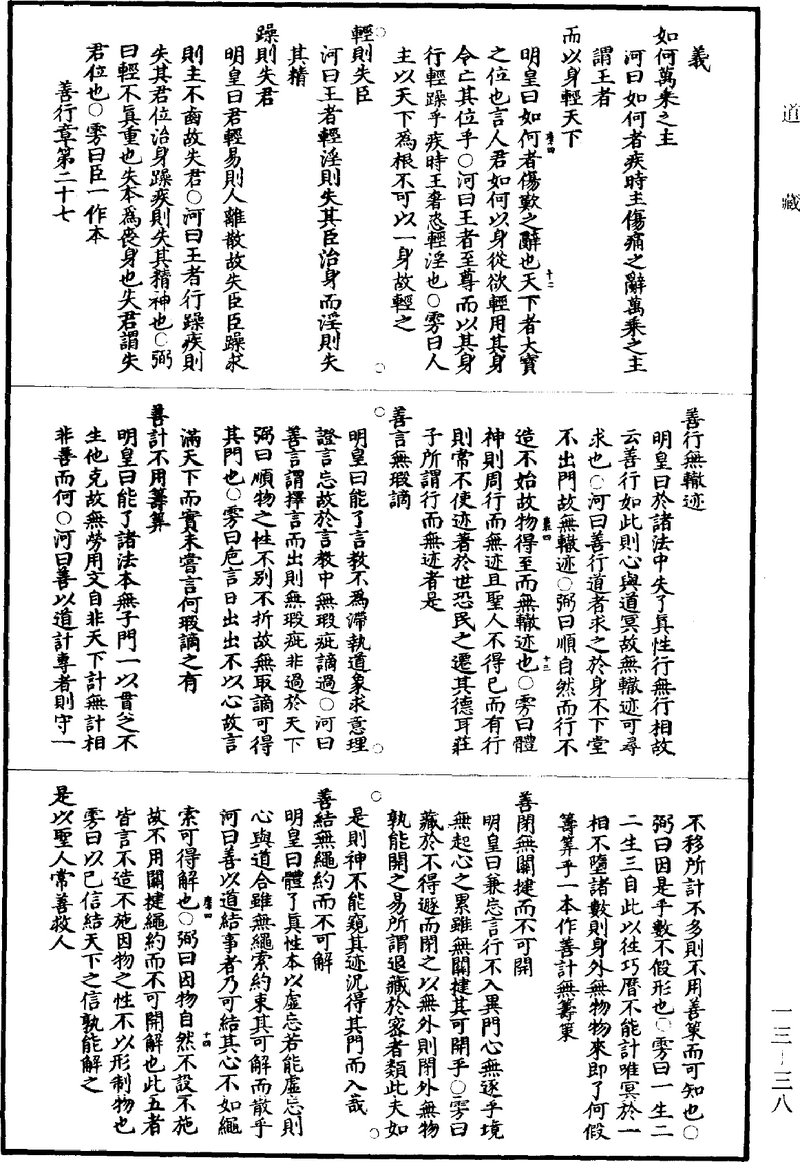 道藏
義
如何萬乘之主
河曰如何者疾時主傷痛之辭萬乘之主
謂王者
而以身輕天下
明皇曰如何者傷歎之辭也天下者大寶
之位也言人君如何以身從欲輕用其身
令亡其位乎○河曰王者至尊而以其身
行輕躁乎疾時王奢恣輕淫也○雱曰人
主以天下為根不可以一身故輕之
輕則失臣
河曰王者輕淫則失其臣治身而淫則失
其精
躁則失君
明皇曰君輕易則人離散故失臣臣躁求
則主不齒故失君○河曰王者行躁疾則
失其君位治身躁疾則失其精神也○弼
曰輕不真重也失本為喪身也失君謂失
君位也○雱曰臣一作本
善行章第二十七
善行無轍迹
明皇曰於諸法中失了真性行無行相故
云善行如此則心與道冥故無轍迹可尋
求也○河曰善行道者求之於身不下堂
不出門故無轍迹○弼曰順自然而行不
造不始故物得至而無轍迹也○雱曰體
神則周行而無迹且聖人不得已而有行
則常不使迹著於世恐民之遷其德耳莊
子所謂行而無迹者是
善言無瑕讁
明皇曰能了言教不為滯執道象求意理
證言忘故於言教中無瑕疵讁過○河曰
善言謂擇言而出則無瑕疵非過於天下
弼曰順物之性不別不折故無取讁可得
其門也○雱曰巵言日出出不以心故言
滿天下而實未嘗言何瑕讁之有
善計不用籌筭
明皇曰能了諸法本無子門一以貫之不
生他克故無勞用文自非天下計無計相
非善而何○河曰善以道計專者則守一
不移所計不多則不用善策而可知也○
弼曰因是乎數不假形也○雱曰一生二
二生三自此以往巧曆不能計唯冥於一
相不墮諸數則身外無物物來即了何假
籌筭乎一本作善計無籌策
善閉無關揵而不可開
明皇曰兼忘言行不入異門心無逐乎境
無起心之累雖無關揵其可開乎○雱曰
藏於不得遯而閉之以無外則閉外無物
孰能開之易所謂退藏於密者類此夫如
是則神不能窺其迹況得其門而入哉
善結無繩約而不可解
明皇曰體了真性本以虛忘若能虛忘則
心與道合雖無繩索約束其可解而散乎
河曰善以道結事者乃可結其心不如繩
索可得解也○弼曰因物自然不設不施
故不用關揵繩約而不可開解也此五者
皆言不造不施因物之性不以形制物也
雱曰以已信結天下之信孰能解之
是以聖人常善救人
一三－三八